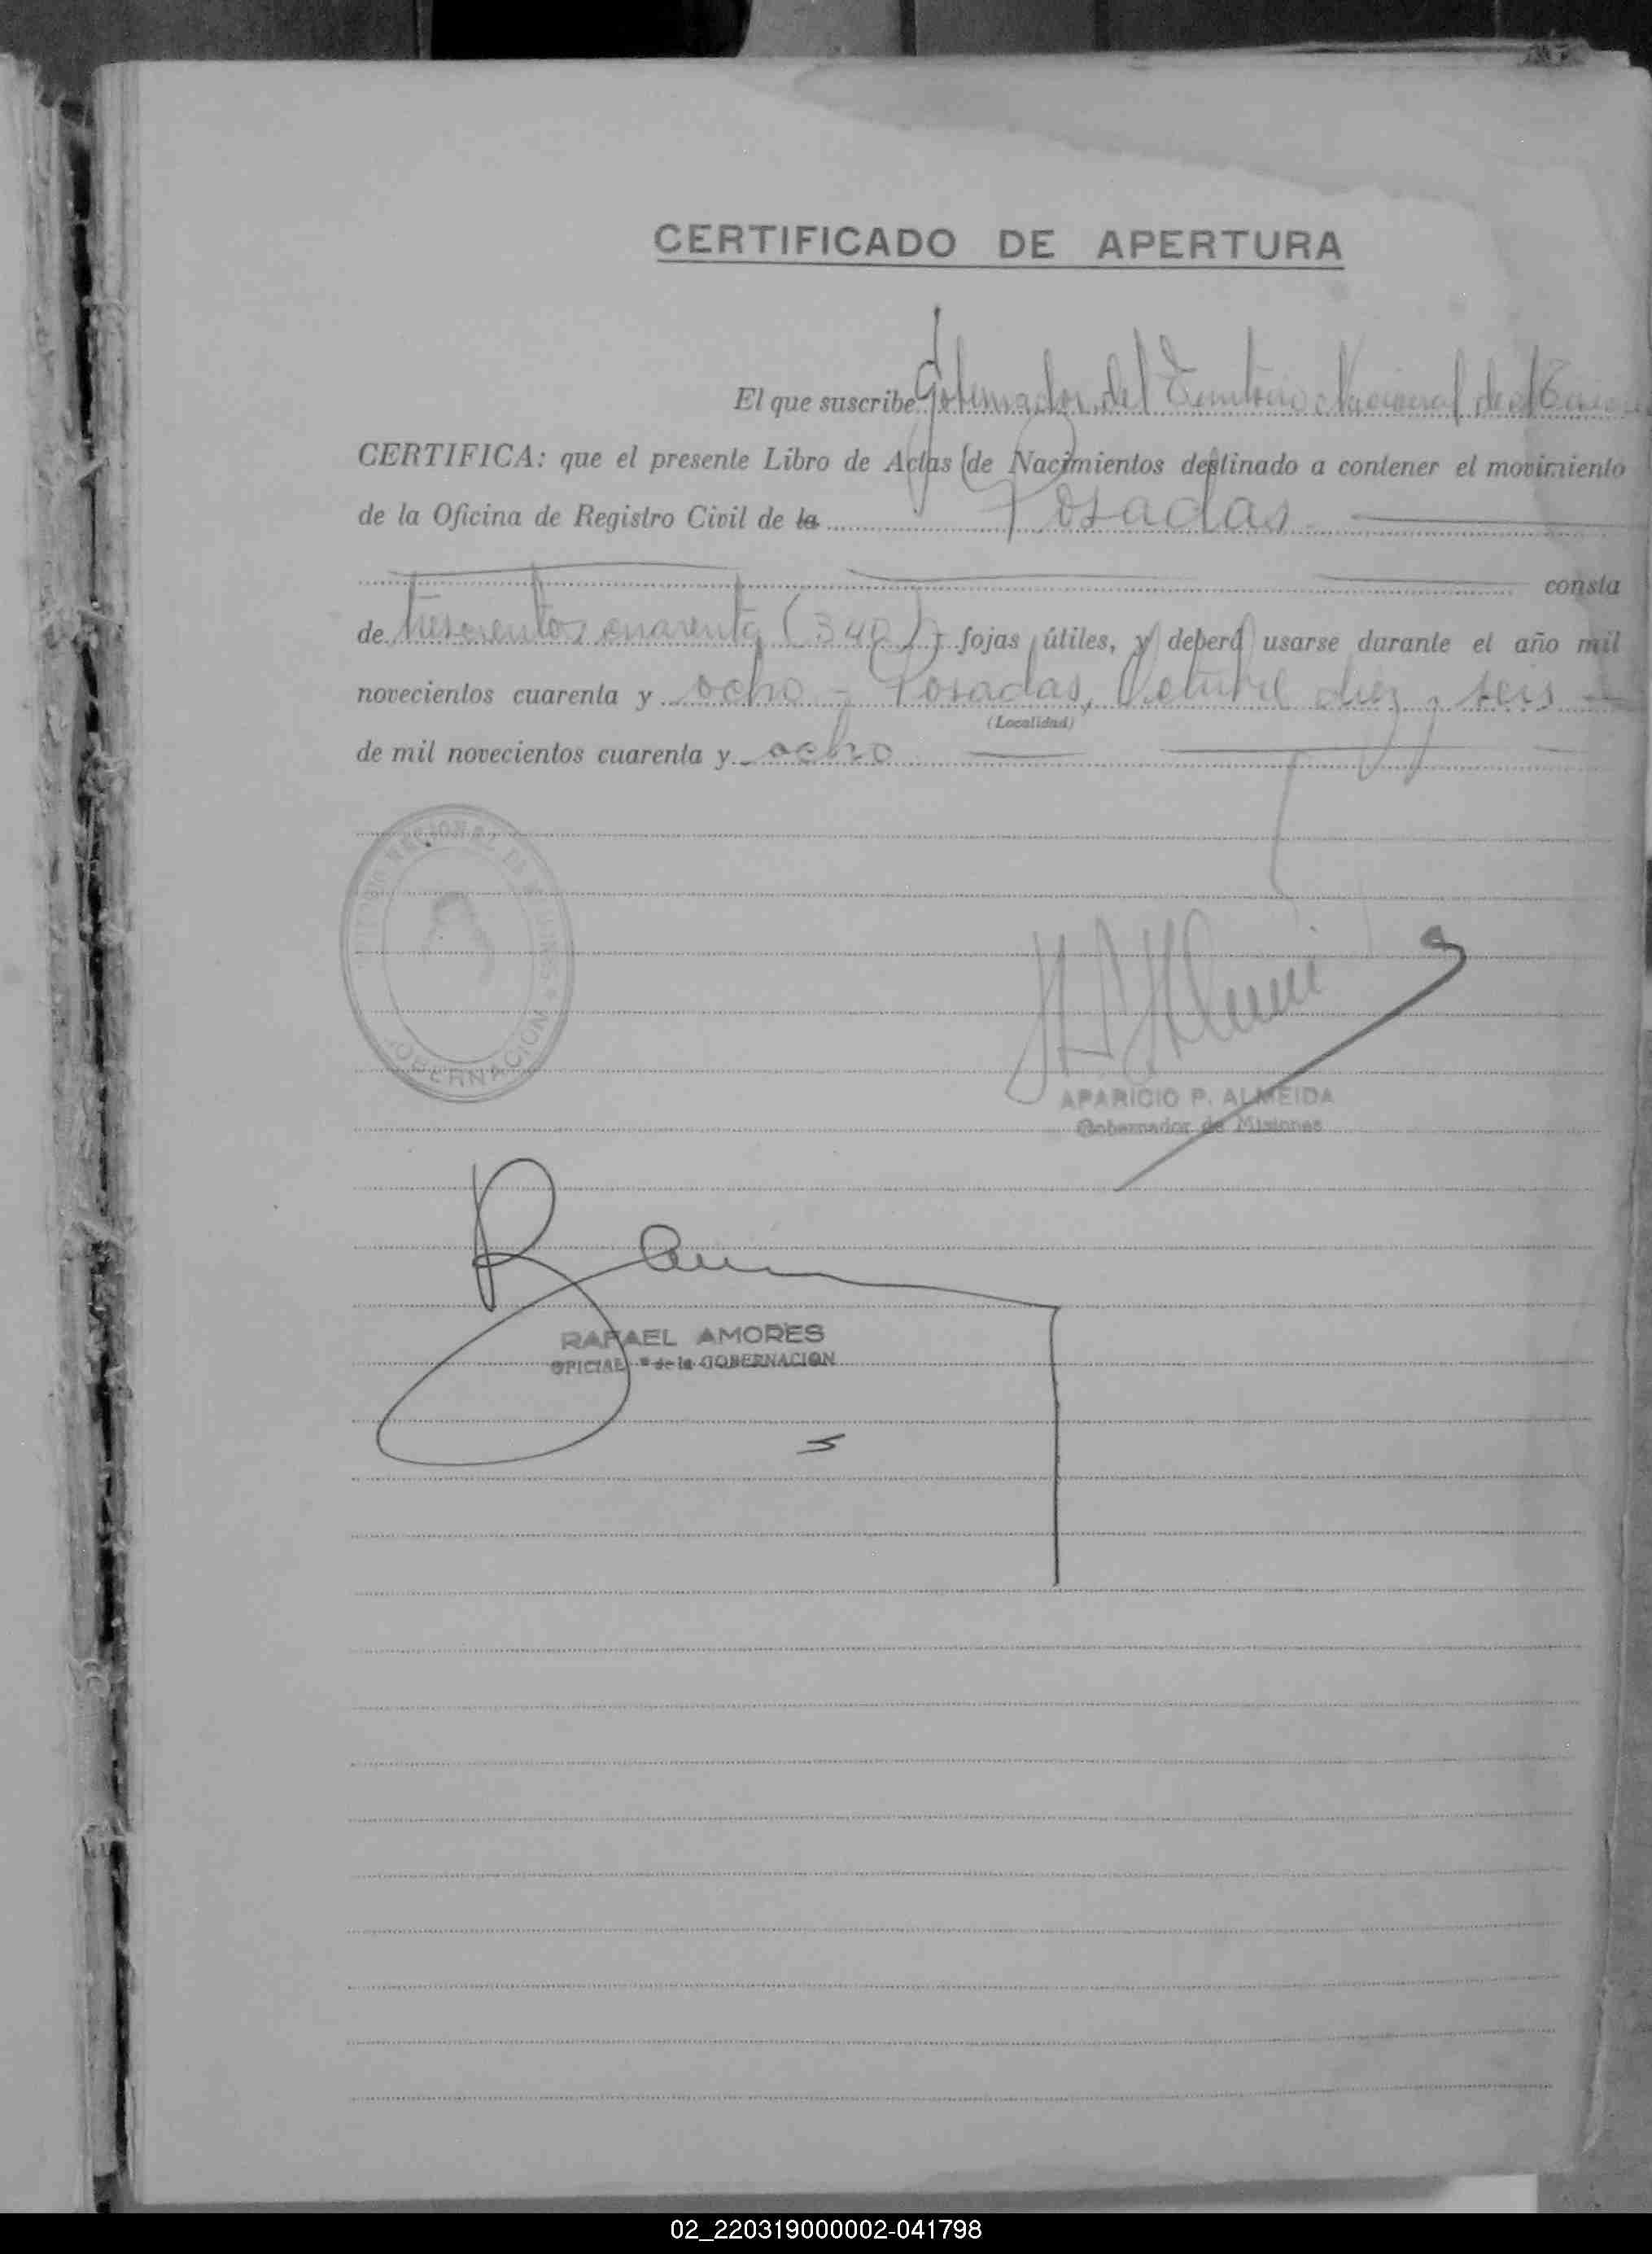 CERTIFICADO DE APERTURA
El que suscribe Gobernador del Territorio Nacional de
CERTIFICA: que el presente Libro de Actas de Nacimientos destinado a contener el movimiento
de la Oficina de Registro Civil de la Posadas
consta
de trescientos cuarenta (340) fojas útiles, y deberá usarse durante el año mil
novecientos cuarenta y ocho - Posadas, Octubre diez y seis
(Localidad)
de mil novecientos cuarenta y ocho
NACIONAL DE
GOBERNACION
APARICIO P. ALMEIDA
Gobernador de Misiones
RAFAEL AMORES
OFICIAL de la GOBERNACION
02_220319000002-041798